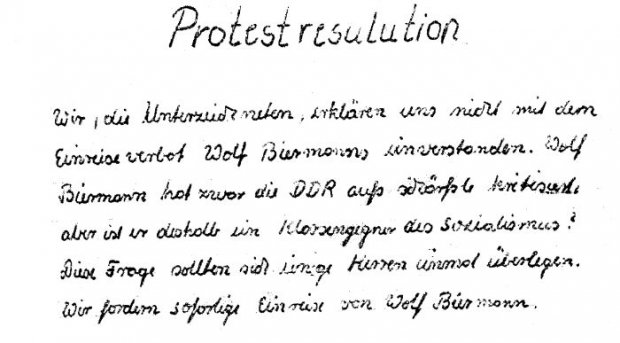 Protestresulution
Wir, die Unterzeichneten, erklären uns nicht mit dem
Einreiseverbot Wolf Biermanns einverstanden. Wolf
Biermann hat zwar die DDR aufs schärfste kritisiert,
aber ist er deshalb ein Klassengegner des Sozialismus?
Diese Frage sollten sich einige Herren einmal überlegen.
Wir fordern sofortige Einreise von Wolf Biermann.